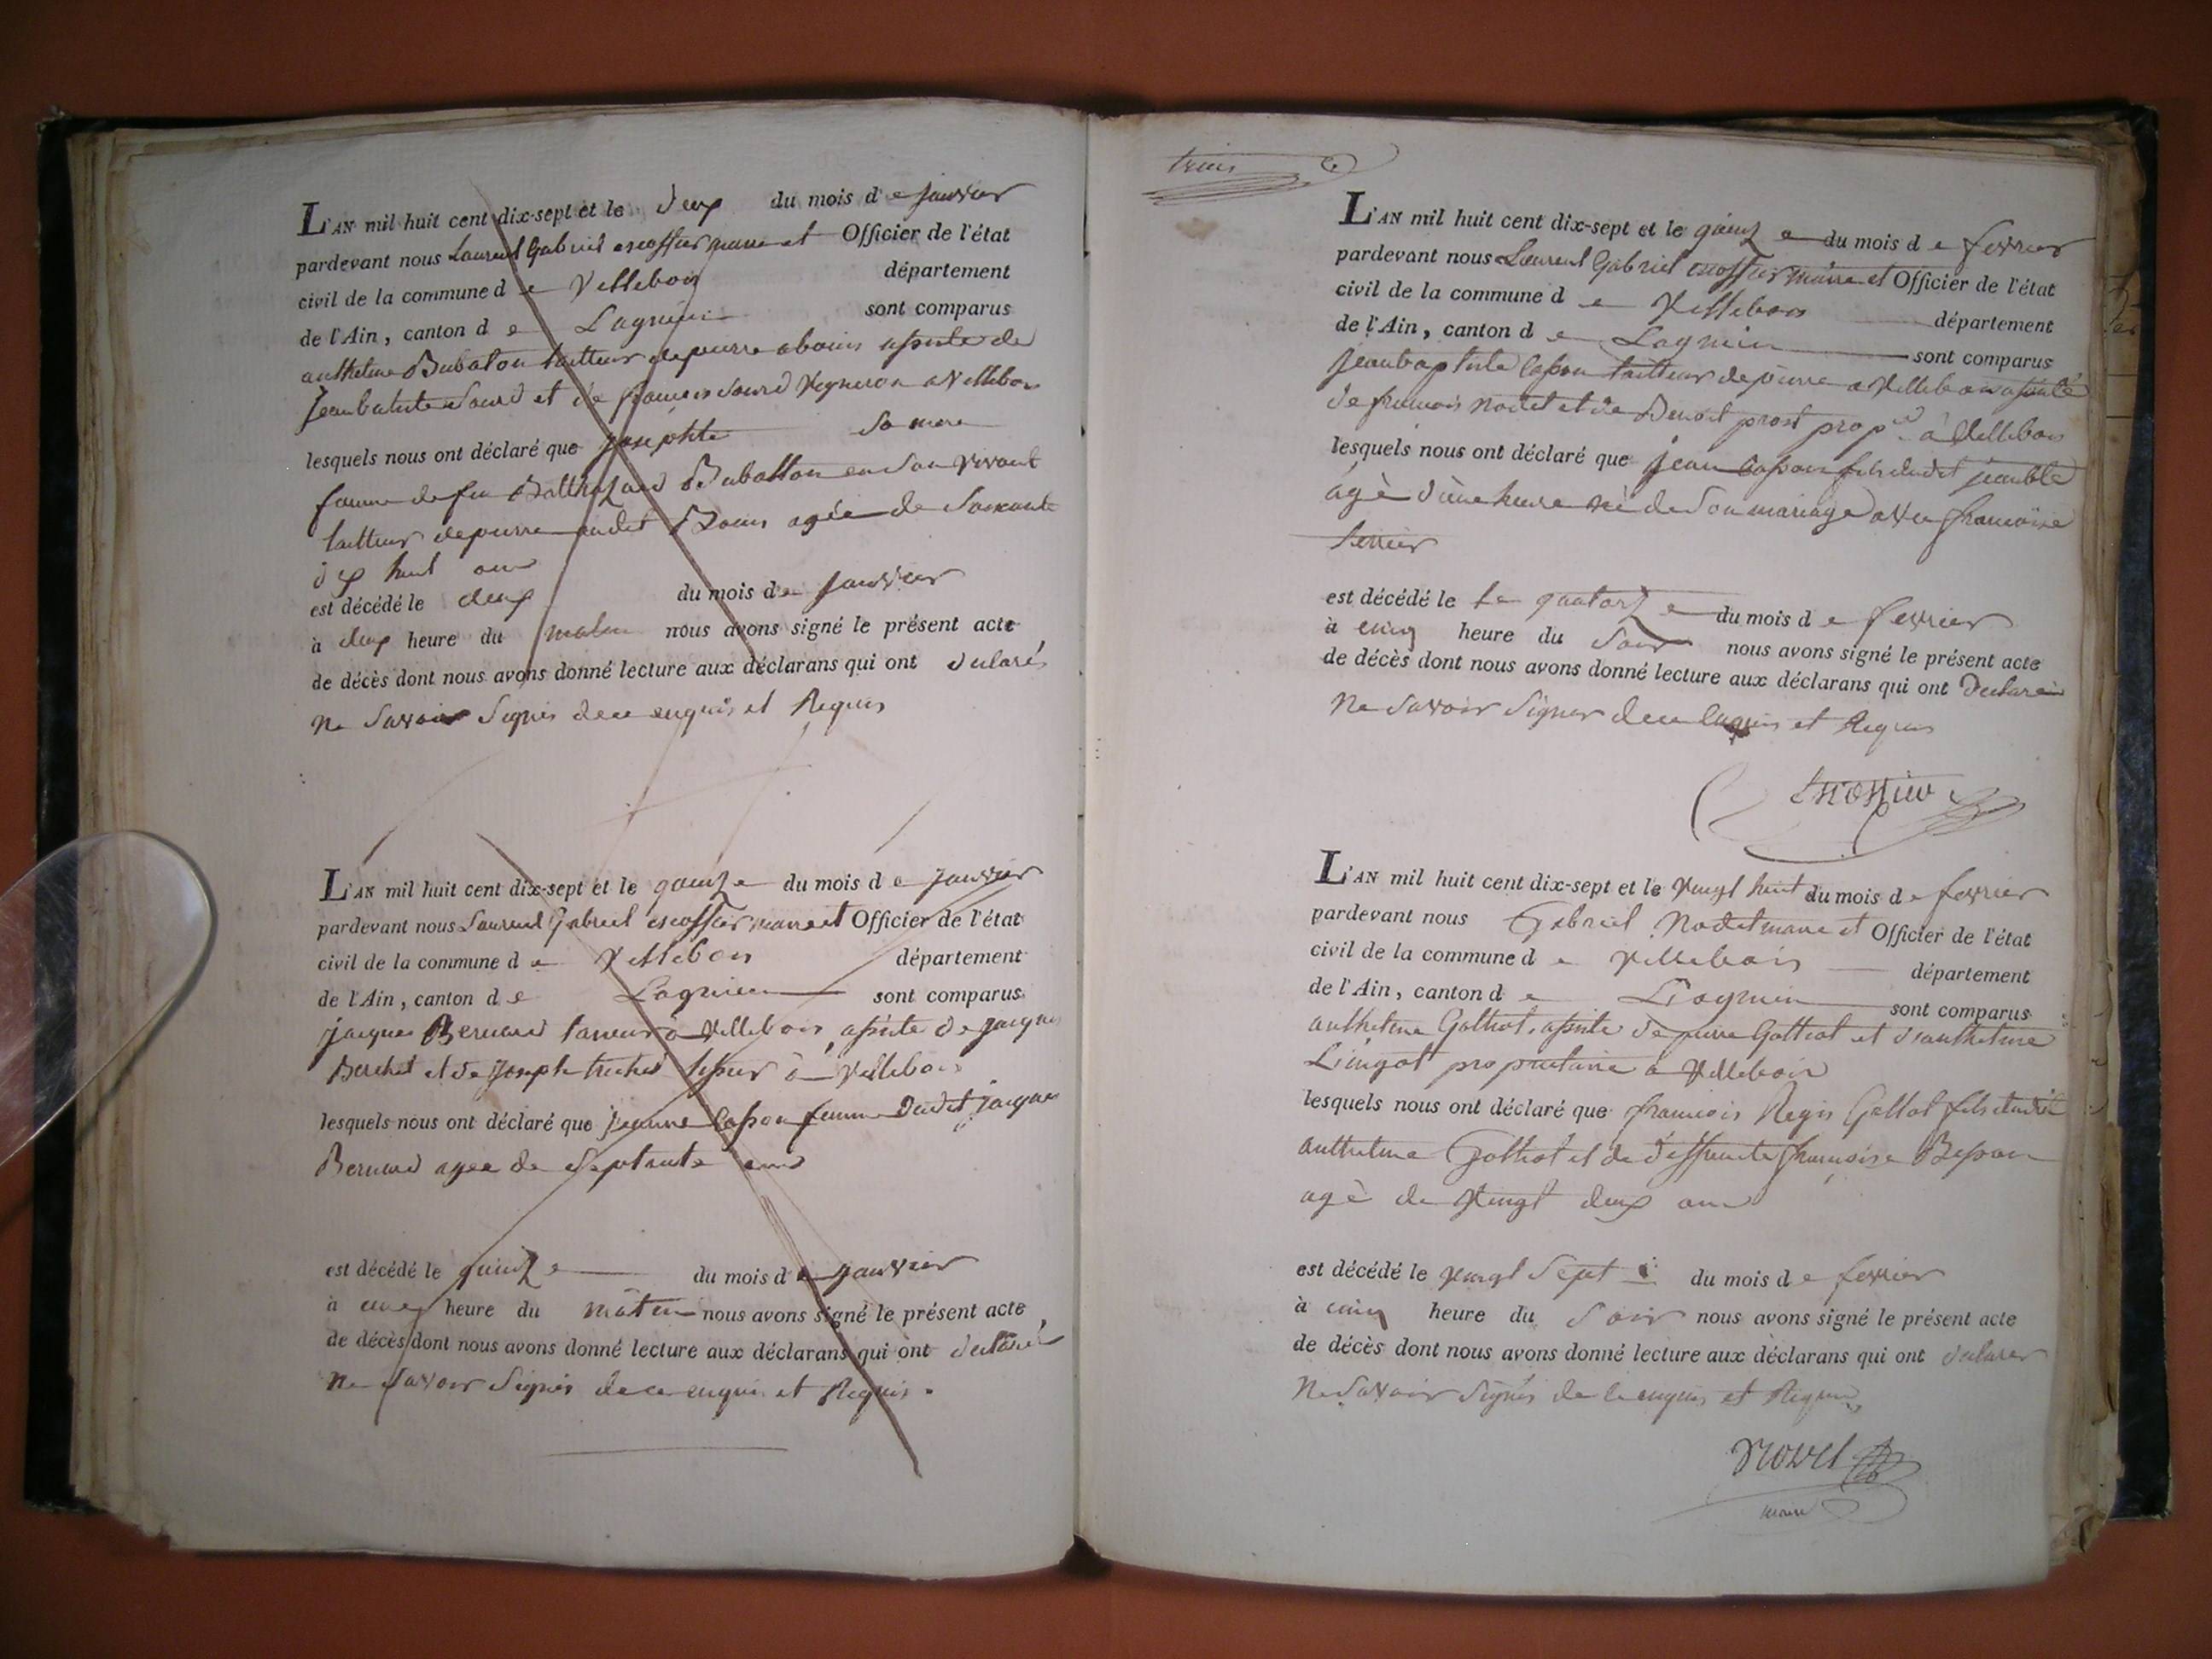 L'AN mil huit cent dix-sept et le deux du mois de janvier
pardevant nous Laurent Gabriel escoffier maire et Officier de l'état
civil de la commune de Villebois département
de l'Ain, canton de Lagnieu sont comparus
anthelme Babolon tailleur de pierre a bouis assisté de
Jean batiste Sourd et de françois Sourd vigneron a villebois
lesquels nous ont déclaré que josephte sa mere
femme de feu Balthazard Babolon en son vivant
tailleur de pierre audit Bouis agée de soixante
dix huit ans
est décédé le deux du mois de janvier
à deux heure du matin nous avons signé le présent acte
de décès dont nous avons donné lecture aux déclarans qui ont declarés
ne Savoir Signer de ce enquis et Requis
L'AN mil huit cent dix-sept et le quinze du mois de janvier
pardevant nous Laurent Gabriel escoffier maire et Officier de l'état
civil de la commune de Villebois département
de l'Ain, canton de Lagnieu sont comparus
jacques Bernard taneur à villebois, assisté de jacques
Berchet et de joseph à Villebois
lesquels nous ont déclaré que jeanne Casson femme dudit jacques
Bernard agée de septante ans
est décédé le quinze du mois de janvier
à une heure du mâtin nous avons signé le présent acte
de décès dont nous avons donné lecture aux déclarans qui ont declaré
ne Savoir Signer de ce enquis et Requis.
trois
L'AN mil huit cent dix-sept et le quinze du mois de fevrier
pardevant nous Laurent Gabriel escoffier maire et Officier de l'état
civil de la commune de Villebois département
de l'Ain, canton de Lagnieu sont comparus
jean baptiste Casson tailleur de pierre a villebois assisté
de francois nodet et de Benoit prost propre à villebois
lesquels nous ont déclaré que jean Casson fils dudit jean bte
agè d'une heure nè de Son mariage avec francoise
est décédé le le quatorze du mois de fevrier
à cinq heure du Soir nous avons signé le présent acte
de décès dont nous avons donné lecture aux déclarans qui ont declaré
ne Savoir Signer de ce enquis et Requis
Escoffier
L'AN mil huit cent dix-sept et le vingt huit du mois de fevrier
pardevant nous Gabriel Nodet maire et Officier de l'état
civil de la commune de villebois département
de l'Ain, canton de Lagnieu sont comparus
anthelme Galliot, assisté de pierre Galliot et d'anthelme
Lingot proprietaire a villebois
lesquels nous ont déclaré que francois Regis Galliot fils dudit
anthelme Galliot et de deffuncte françoise Besson
agè de vingt deux ans
est décédé le vingt sept du mois de fevrier
à cinq heure du Soir nous avons signé le présent acte
de décès dont nous avons donné lecture aux déclarans qui ont declarer
ne Savoir Signer de ce enquis et Requis
Nodet
maire